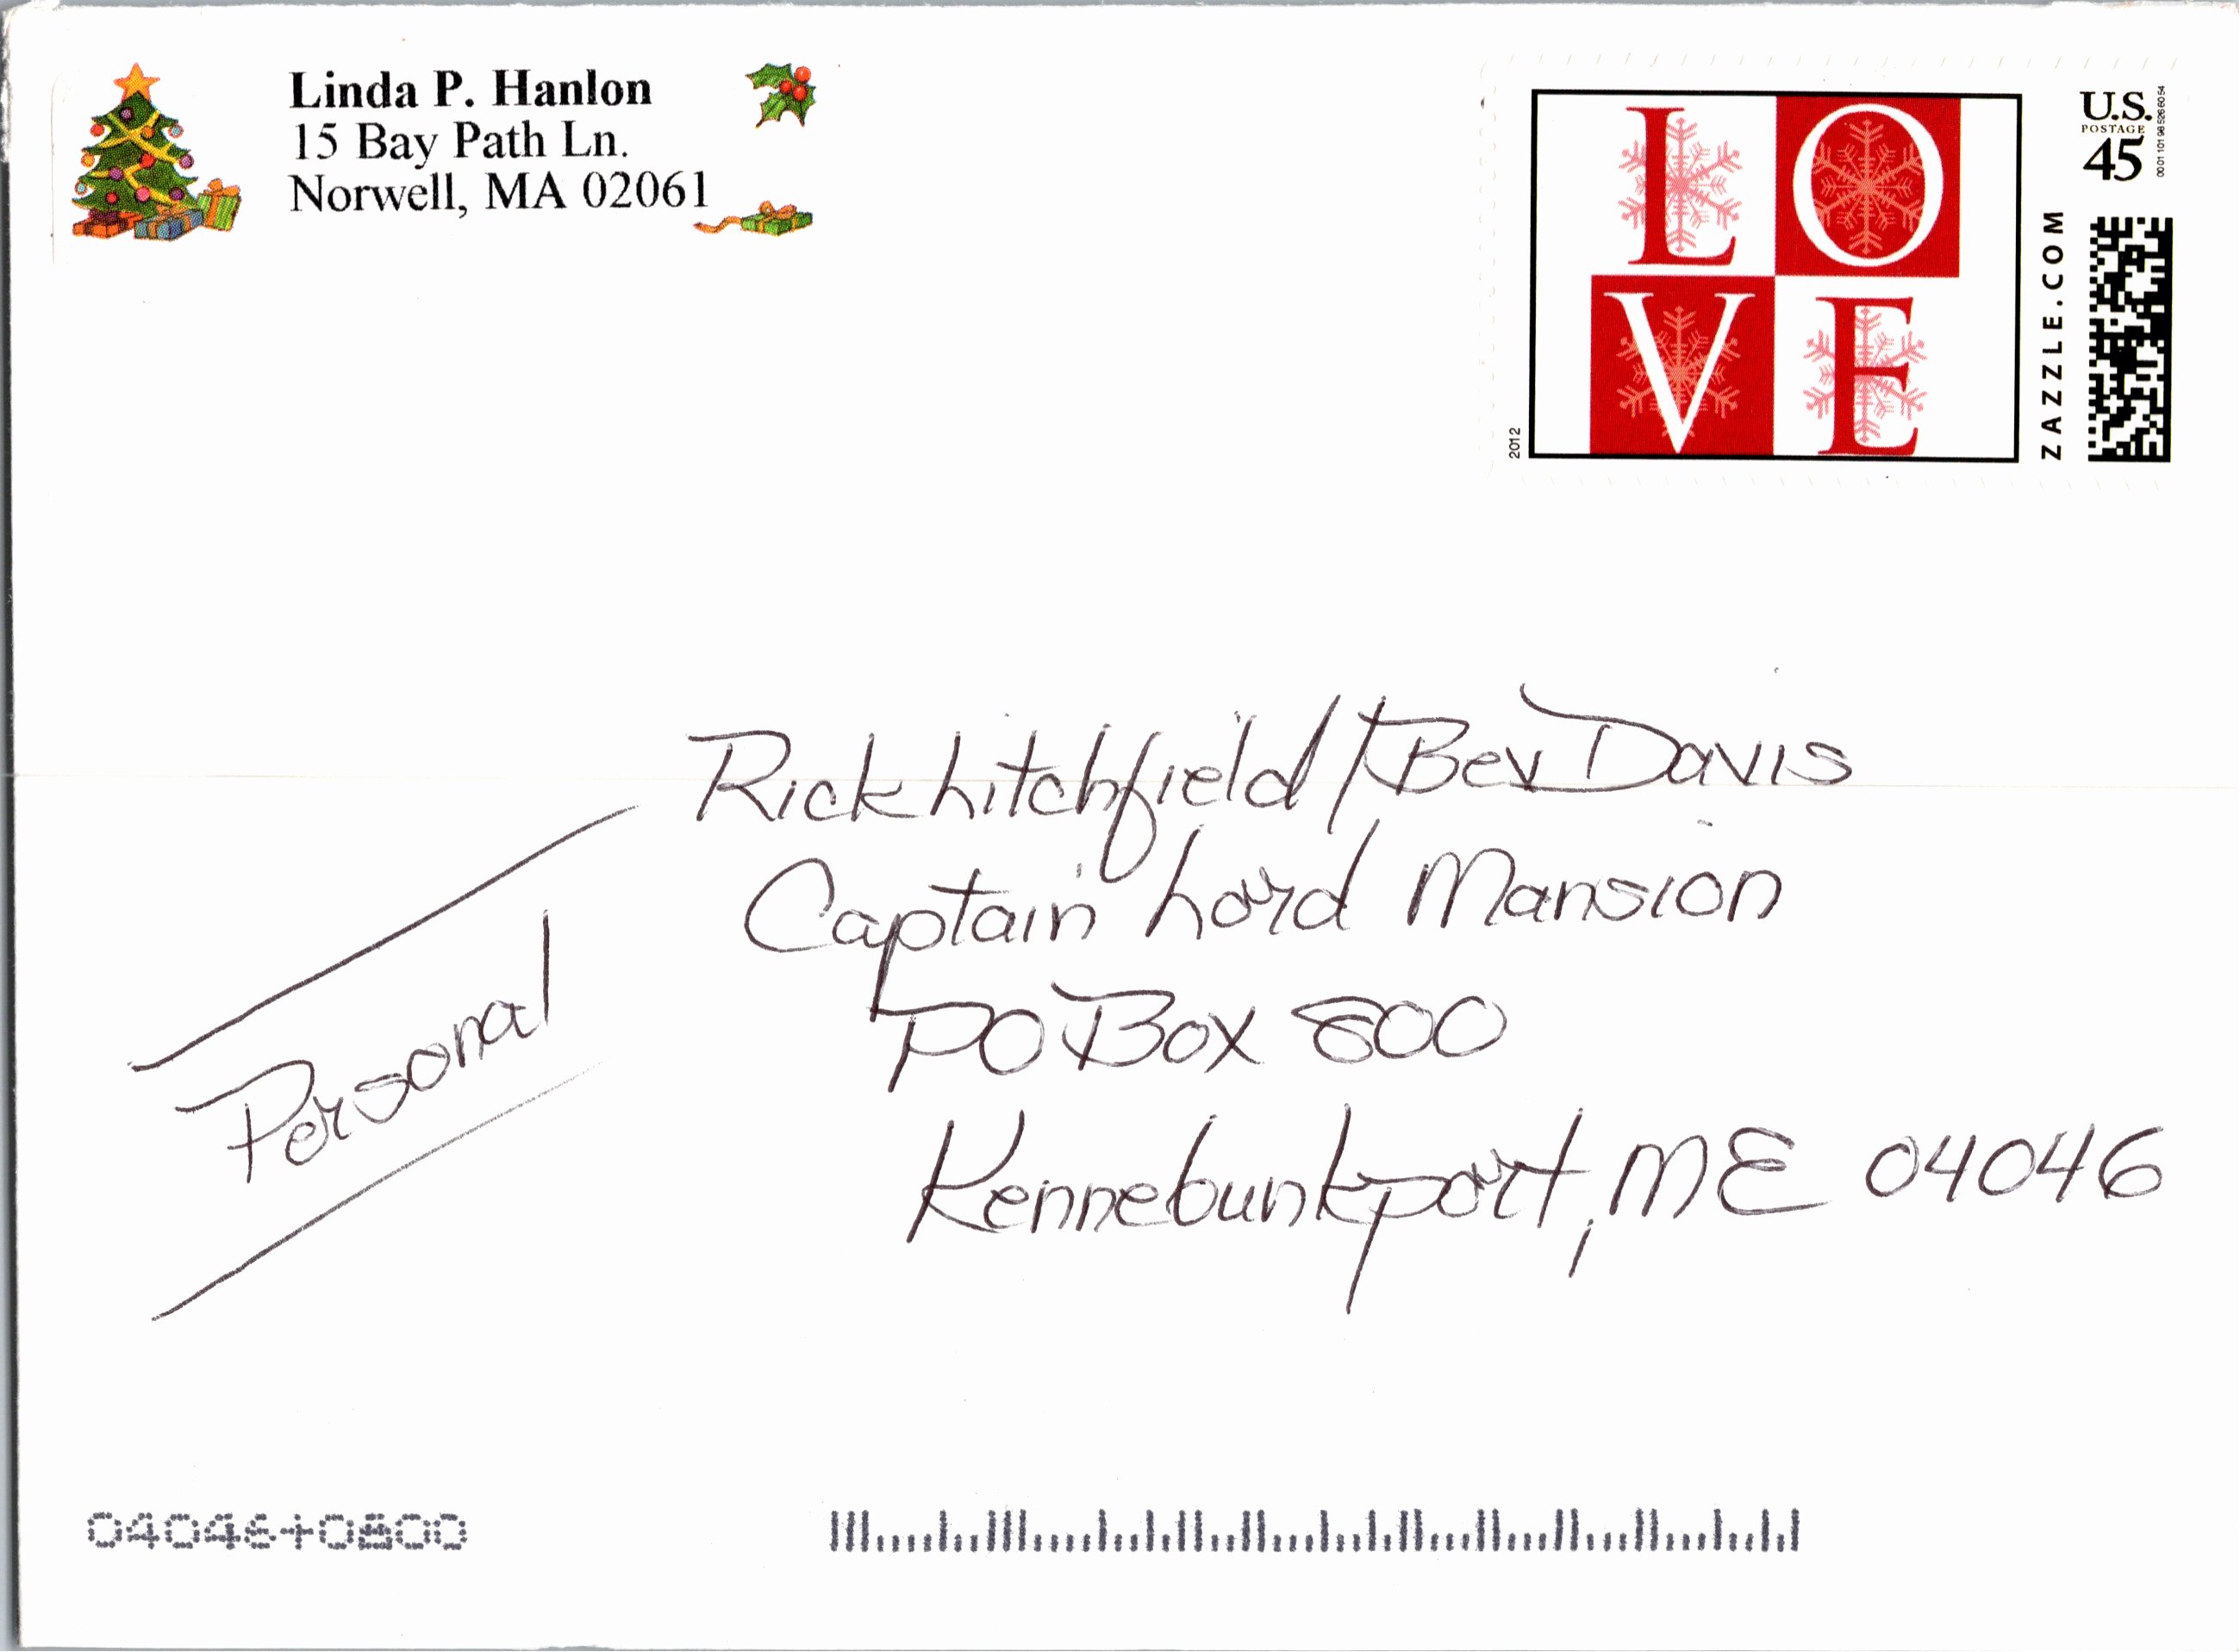 Linda P. Hanlon
15 Bay Path Ln.
Norwell, MA 02061
LO
VE
2012
ZAZZLE.COM
U.S.
POSTAGE
45
Rick Litchfield/Bev Davis
Captain Lord Mansion
PO Box 800
Kennebunkport, ME 04046
Personal
04046+0800